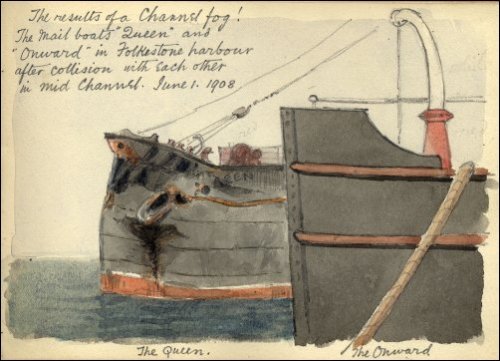 The results of a Channel fog!
The mail boats "Queen" and
"Onward" in Folkestone harbour
after collision with each other
in mid Channel. June 1. 1908
QUEEN
The Queen.
The Onward